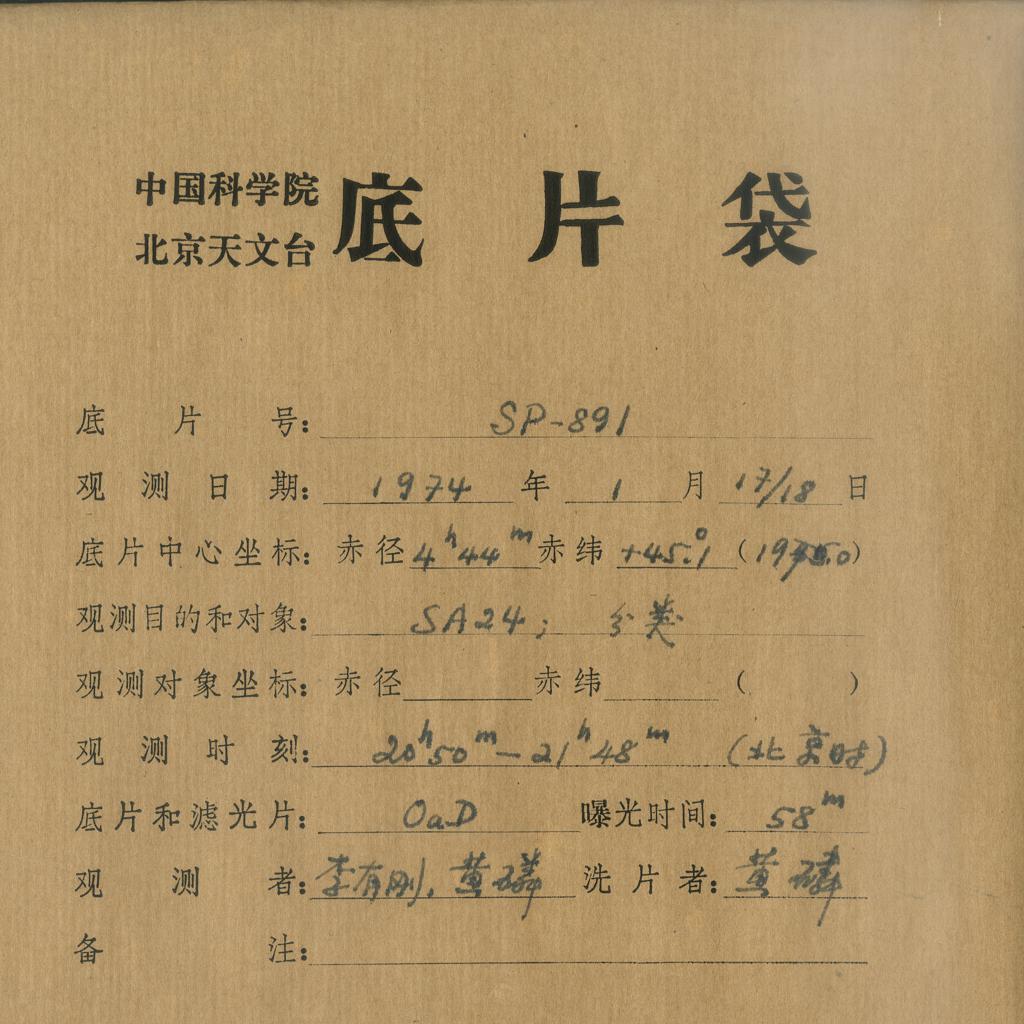 中国科学院
北京天文台
底片袋
底片号: SP-891
观测日期: 1974 年 1 月 17/18 日
底片中心坐标: 赤径 4h44m 赤纬 +45.°1 (1975.0)
观测目的和对象: SA24; 分类
观测对象坐标: 赤径 赤纬 ( )
观测时刻: 20h50m-21h48m (北京时)
底片和滤光片: OaD 曝光时间: 58m
观测者: 李有刚, 黄磷 洗片者: 黄磷
备注: